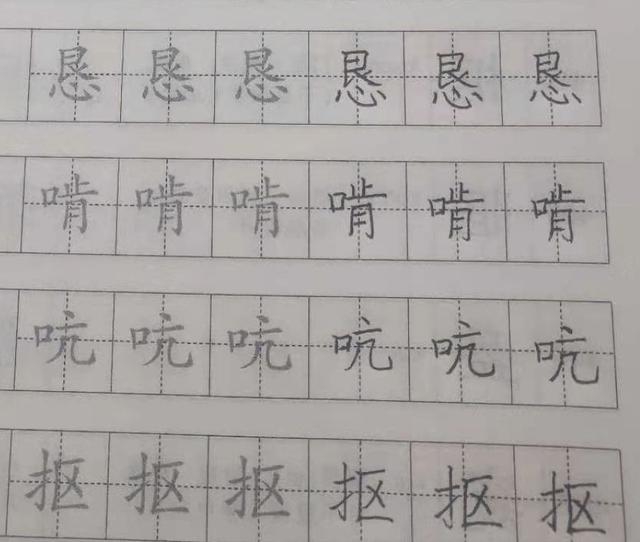 恳恳恳恳恳恳
啃啃啃啃啃啃
吭吭吭吭吭吭
抠抠抠抠抠抠